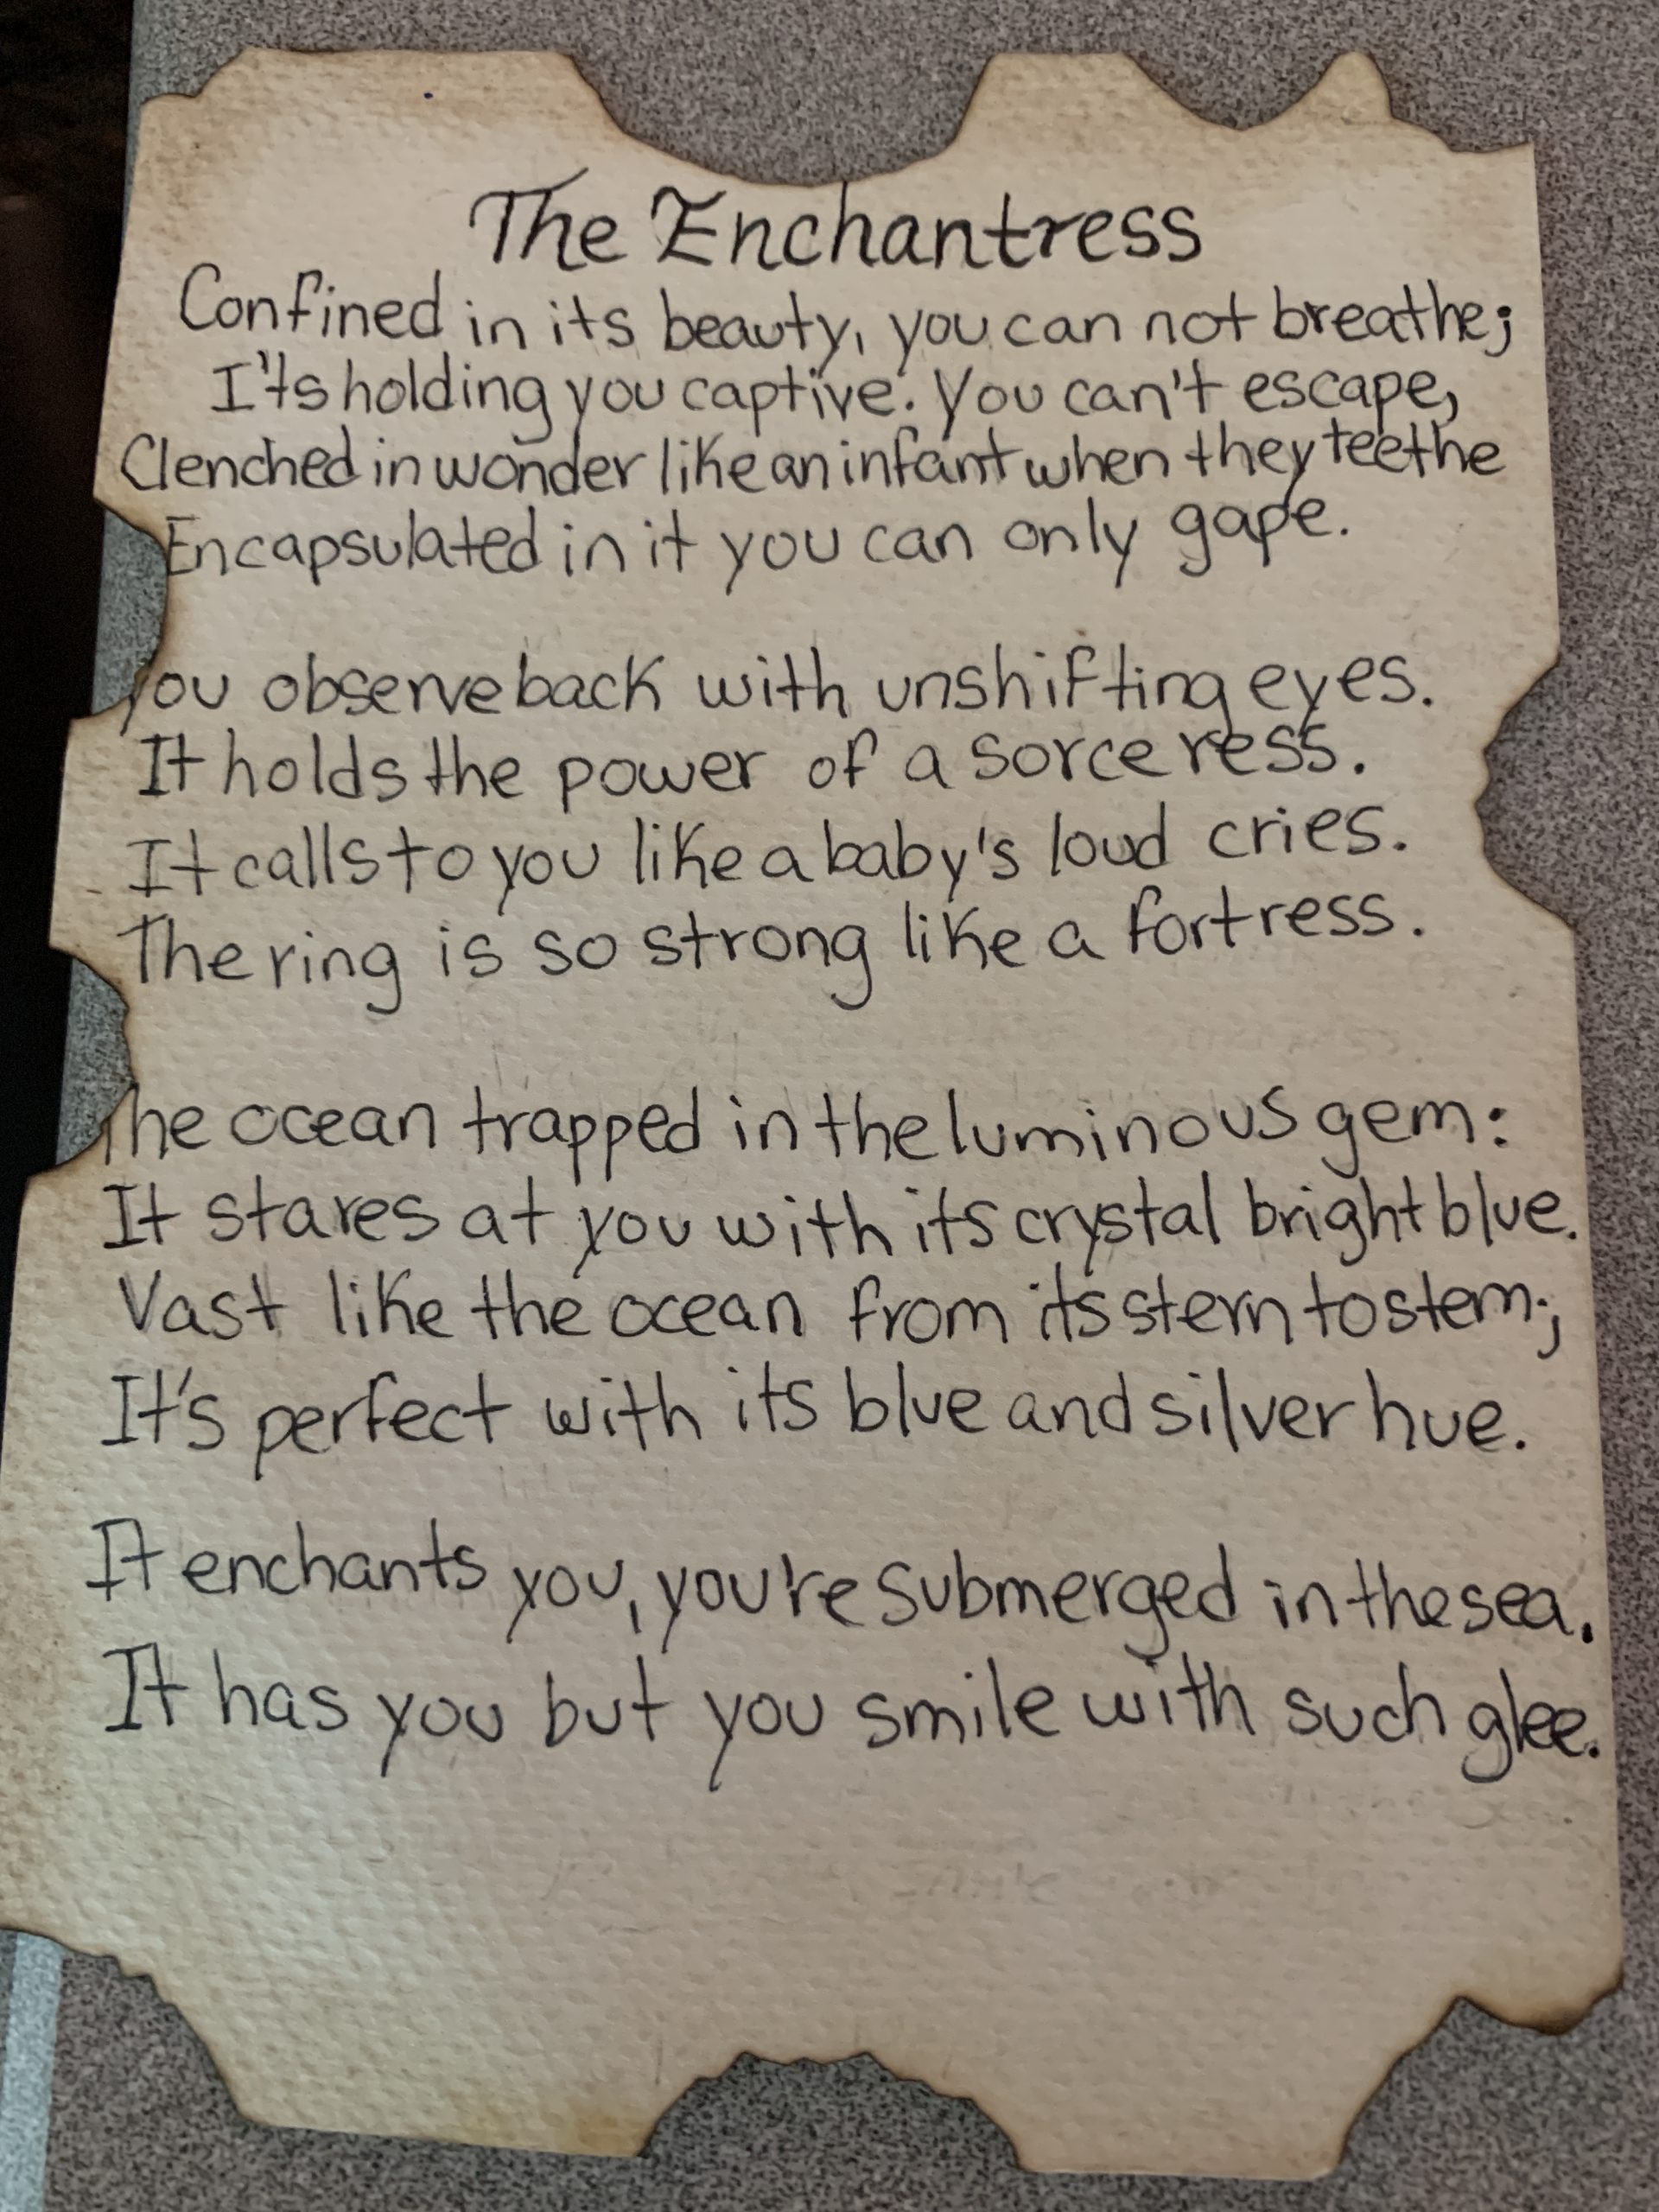 The Enchantress
Confined in its beauty, you can not breathe;
It's holding you captive. You can't escape,
Clenched in wonder like an infant when they teethe
Encapsulated in it you can only gape.
You observe back with unshifting eyes.
It holds the power of a sorceress.
It calls to you like a baby's loud cries.
The ring is so strong like a fortress.
The ocean trapped in the luminous gem:
It stares at you with its crystal bright blue.
Vast like the ocean from its stern to stem;
It's perfect with its blue and silver hue.
It enchants you, you're submerged in the sea.
It has you but you smile with such glee.